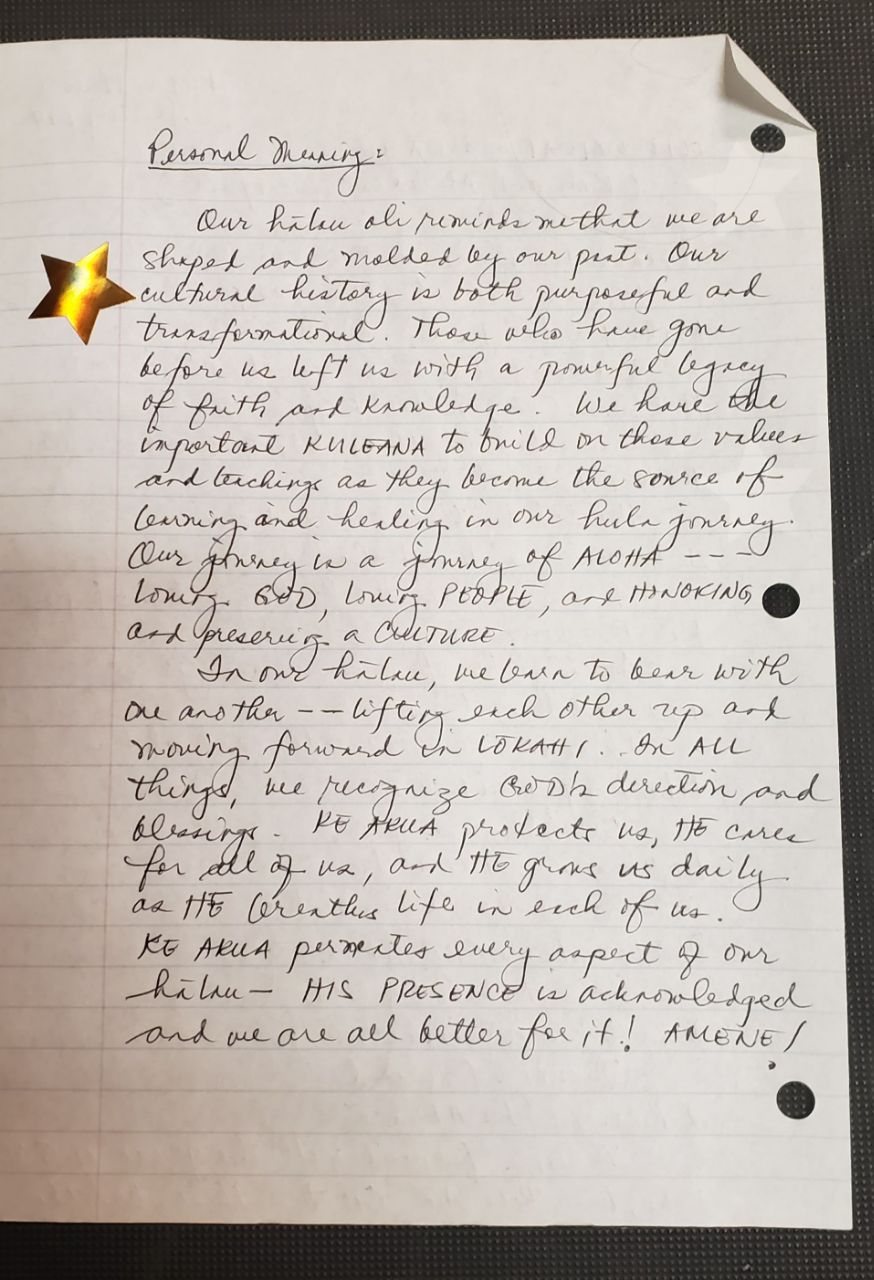 Personal Meaning:
Our hālau oli reminds me that we are
shaped and molded by our past. Our
cultural history is both purposeful and
transformational. Those who have gone
before us left us with a powerful legacy
of faith and knowledge. We have the
important KULEANA to build on those values
and teachings as they become the source of
learning and healing in our hula journey.
Our journey is a journey of ALOHA ---
loving GOD, loving PEOPLE, and HONORING
and preserving a CULTURE.
In our hālau, we learn to bear with
one another -- lifting each other up and
moving forward in LŌKAHI. In ALL
things, we recognize GOD's direction and
blessings. KE AKUA protects us, HE cares
for all of us, and HE grows us daily
as HE breathes life in each of us.
KE AKUA permeates every aspect of our
hālau - HIS PRESENCE is acknowledged
and we are all better for it! AMENE!